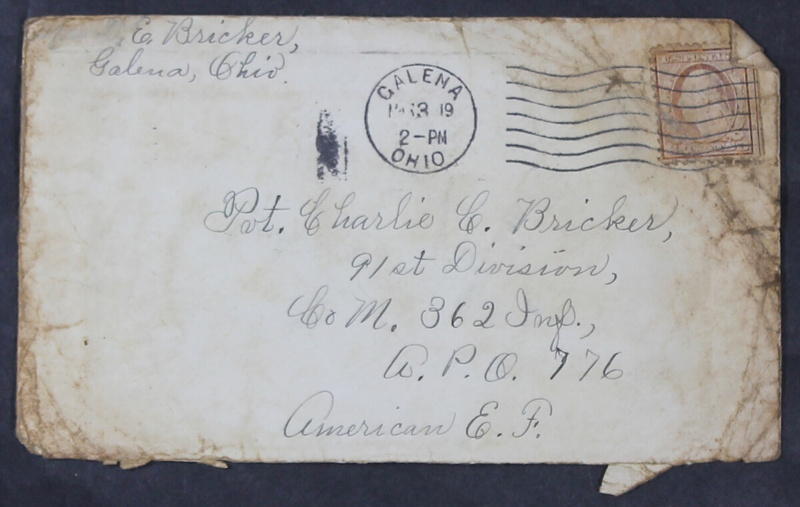 E. Bricker,
Galena, Ohio.
GALENA
19
2-PM
OHIO
Pvt. Charlie E. Bricker,
91st Division,
Co M. 362 Inf.,
A. P. O. 776
American E. F.